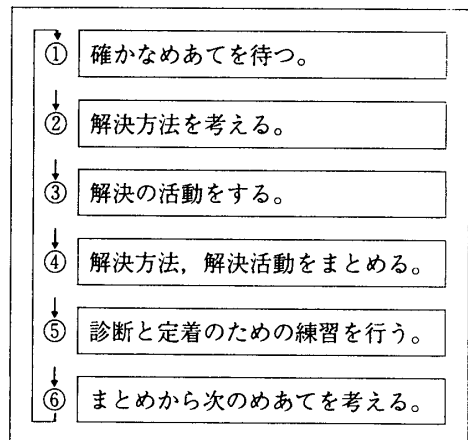 ① 確かなめあてを待つ。
② 解決方法を考える。
③ 解決の活動をする。
④ 解決方法，解決活動をまとめる。
⑤ 診断と定着のための練習を行う。
⑥ まとめから次のめあてを考える。